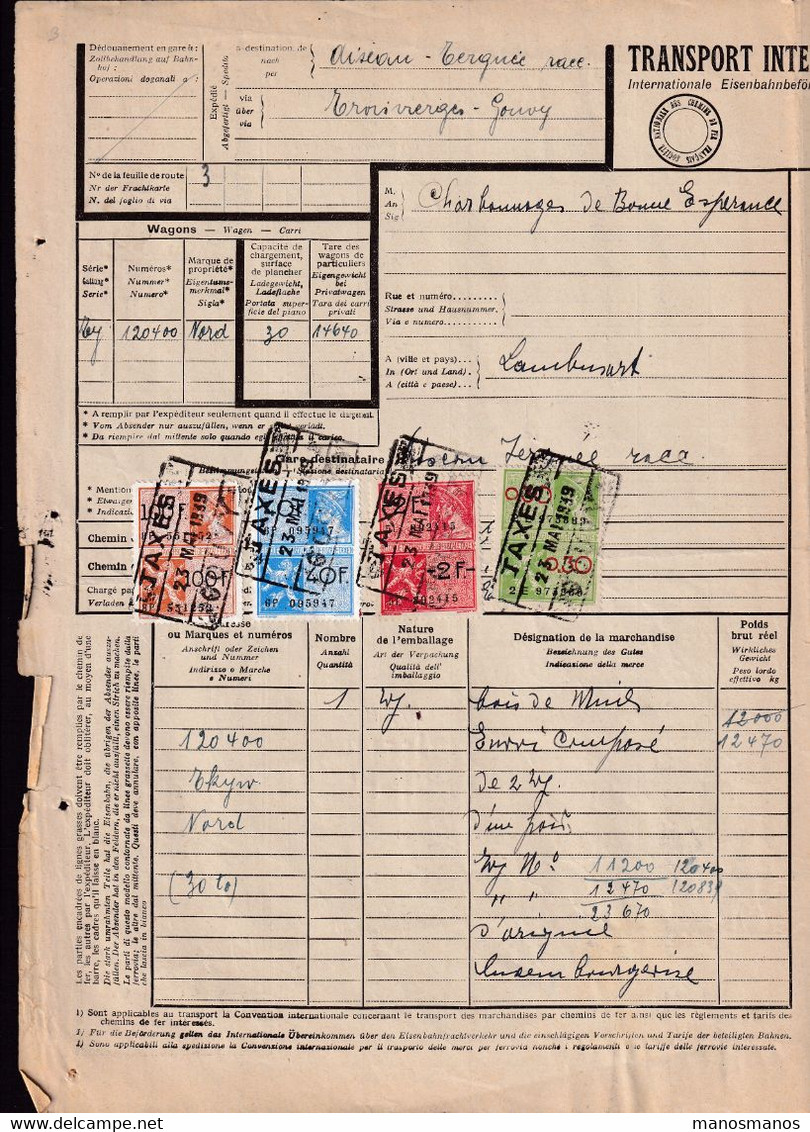 3
Dédouanement en gare à :
Zollbehandlung auf Bahnhof :
Operazioni doganali a :
Expédié
Abgefertigt — Spedito
à destination de
nach
per
Aiseau - Tergnée racc.
via
über
via
Troisvierges - Gouvy
TRANSPORT INTE
Internationale Eisenbahnbeför
SOCIÉTÉ NATIONALE DES CHEMINS DE FER FRANÇAIS
No de la feuille de route
Nr der Frachtkarte
N. del foglio di via
3
M.
An
Sig
Charbonnages de Bonne Espérance
Wagons — Wagen — Carri
Série*
Gattung*
Serie*
Numéros*
Nummer*
Numero*
Marque de propriété*
Eigentums-merkmal*
Sigla*
Capacité de chargement, surface de plancher
Ladegewicht, Ladefläche
Portata superficie del piano
Tare des wagons de particuliers
Eigengewicht bei Privatwagen
Tara dei carri privati
120400
Nord
30
14640
Rue et numéro
Strasse und Hausnummer
Via e numero
A (ville et pays)
In (Ort und Land)
A (città e paese)
Lambusart
* A remplir par l'expéditeur seulement quand il effectue le chargement.
* Vom Absender nur auszufüllen, wenn er
* Da riempire dal mittente solo quando egli effettua il carico.
Gare destinataire
Tergnée racc
* Mention
* Etwaige
* Indicazioni
Chemin
Chemin
Chargé par
Verladen
TAXES
23 MAI 1939
100F.
TAXES
23 MAI 1939
6P 095947
40F.
6P 095947
TAXES
23 MAI 1939
2F.
TAXES
23 MAI 1939
0.30
ou Marques et numéros
Anschrift oder Zeichen und Nummer
Indirizzo e Marche e Numeri
Nombre
Anzahl
Quantità
Nature de l'emballage
Art der Verpackung
Qualità dell' imballaggio
Désignation de la marchandise
Bezeichnung des Gutes
Indicazione della merce
Poids brut réel
Wirkliches Gewicht
Peso lordo effettivo kg
1
Wg.
bois de
12000
120400
Envoi Composé
12470
de 2 Wg.
Nord
d'un poids
Wg No 11200 120400
(30 to)
" " 12470
23670
d'origine
luxembourgeoise
Les parties encadrées de lignes grasses doivent être remplies par le chemin de fer, les autres par l'expéditeur. L'expéditeur doit oblitérer, au moyen d'une barre, les cadres qu'il laisse en blanc.
Die stark umrahmten Teile hat die Eisenbahn, die übrigen der Absender auszufüllen. Der Absender hat in den Feldern, die er nicht ausfüllt, einen Strich zu machen.
Le parti di questo modello contornate da linee grassette devono essere riempite dalla ferrovia; le altre dal mittente. Questi deve annullare, con apposite linee, le parti che lascia in bianco
1) Sont applicables au transport la Convention internationale concernant le transport des marchandises par chemins de fer ainsi que les règlements et tarifs des chemins de fer intéressés.
1) Für die Beförderung gelten das Internationale Übereinkommen über den Eisenbahnfrachtverkehr und die einschlägigen Vorschriften und Tarife der beteiligten Bahnen.
1) Sono applicabili alla spedizione la Convenzione internazionale per il trasporto delle merci per ferrovia nonchè i regolamenti e le tariffe delle ferrovie interessate.
manosmanos